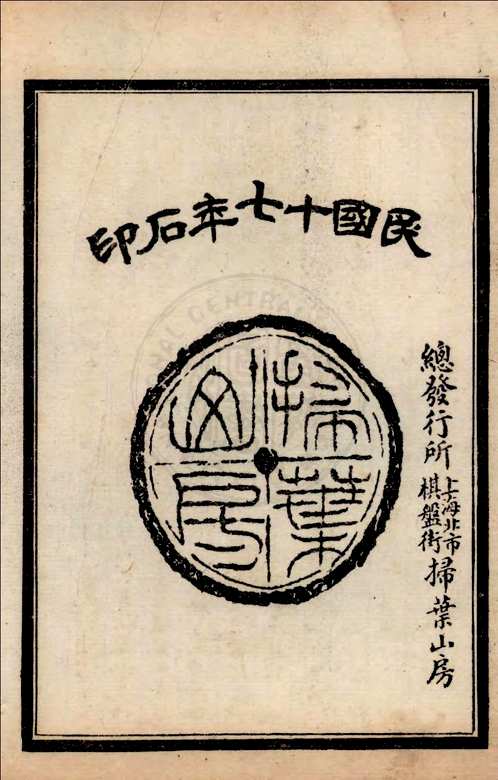 民國十七年石印
掃葉山房
總發行所
上海北市
棋盤街
掃葉山房